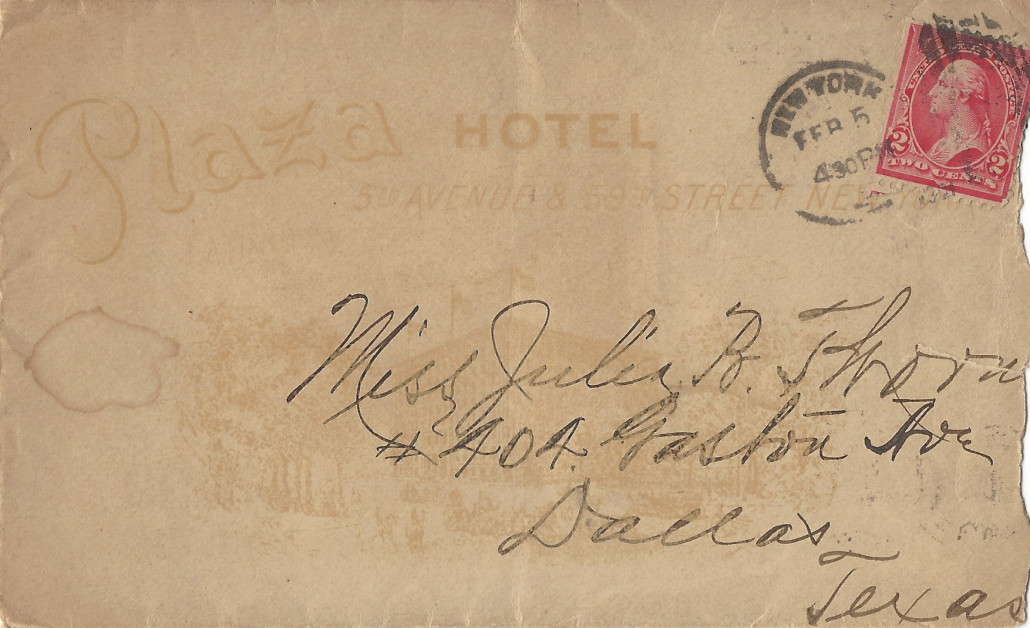 Plaza HOTEL
5TH AVENUE & 59TH STREET NEW YORK
NEW YORK
FEB 5
430PM
2 2
TWO CENTS
Miss Julia B. Thorn
# 404. Gaston Ave
Dallas
Texas